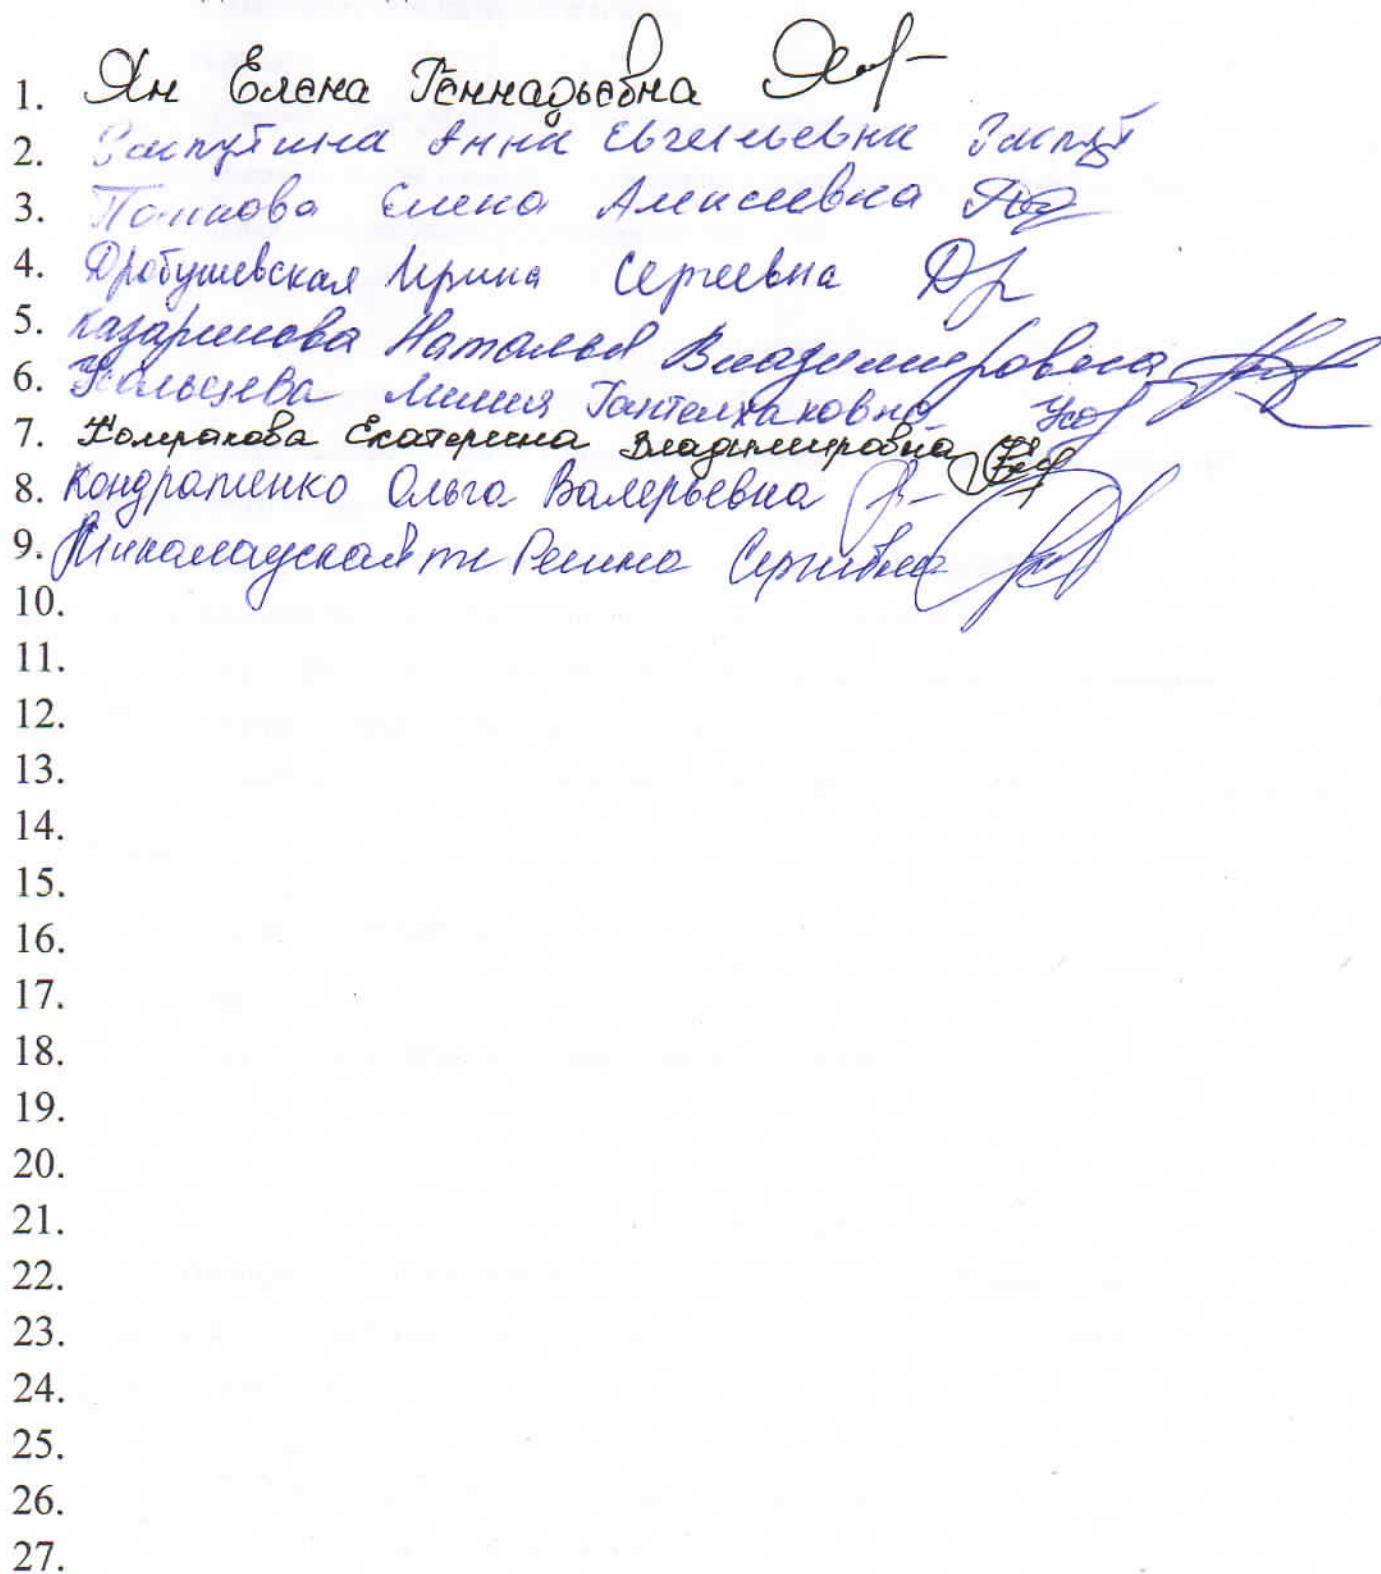 1. Ян Елена Геннадьевна
2. Распутина Анна Евгеньевна Распут
3. Попкова Елена Алексеевна
4. Дробушевская Ирина Сергеевна Др
5. Казаринова Наталья Владимировна
6. Усольцева Лилия Усо
7. Екатерина Владимировна
8. Кондратенко Ольга Валерьевна
9. Регина Сергеевна
10.
11.
12.
13.
14.
15.
16.
17.
18.
19.
20.
21.
22.
23.
24.
25.
26.
27.